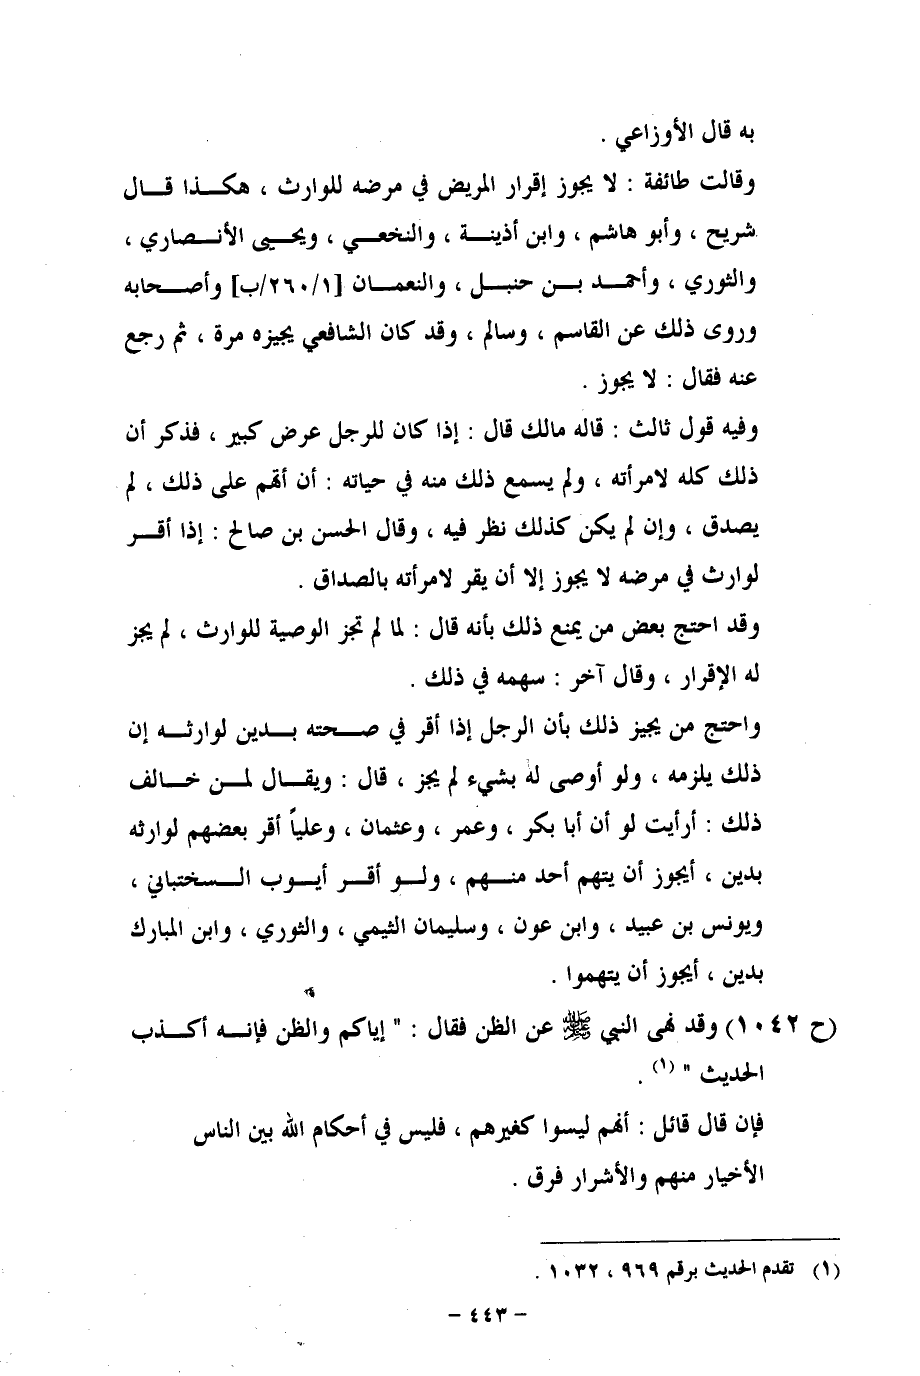 به قال الأوزاعي .
وقالت طائفة : لا يجوز إقرار المريض في مرضه للوارث ، هكذا قال
شريح ، وأبو هاشم ، وابن أذينة ، والنخعي ، ويحيى الأنصاري ،
والثوري ، وأحمد بن حنبل ، والنعمان [١/٢٦٠/ب] وأصحابه
وروى ذلك عن القاسم ، وسالم ، وقد كان الشافعي يجيزه مرة ، ثم رجع
عنه فقال : لا يجوز .
وفيه قول ثالث : قاله مالك قال : إذا كان للرجل عرض كبير ، فذكر أن
ذلك كله لامرأته ، ولم يسمع ذلك منه في حياته : أن أتهم على ذلك ، لم
يصدق ، وإن لم يكن كذلك نظر فيه ، وقال الحسن بن صالح : إذا أقر
لوارث في مرضه لا يجوز إلا أن يقر لامرأته بالصداق .
وقد احتج بعض من يمنع ذلك بأنه قال : لما لم تجز الوصية للوارث ، لم يجز
له الإقرار ، وقال آخر : سهمه في ذلك .
واحتج من يجيز ذلك بأن الرجل إذا أقر في صحته بدين لوارثه إن
ذلك يلزمه ، ولو أوصى له بشيء لم يجز ، قال : ويقال لمن خالف
ذلك : أرأيت لو أن أبا بكر ، وعمر ، وعثمان ، وعلياً أقر بعضهم لوارثه
بدين ، أيجوز أن يتهم أحد منهم ، ولو أقر أيوب السختباني ،
ويونس بن عبيد ، وابن عون ، وسليمان التيمي ، والثوري ، وابن المبارك
بدين ، أيجوز أن يتهموا .
(ح ١٠٤٢) وقد نهى النبي ﷺ عن الظن فقال : " إياكم والظن فإنه أكذب
الحديث " (١) .
فإن قال قائل : أنهم ليسوا كغيرهم ، فليس في أحكام الله بين الناس
الأخيار منهم والأشرار فرق .
(١) تقدم الحديث برقم ٩٦٩ ، ١٠٣٢ .
- ٤٤٣ -